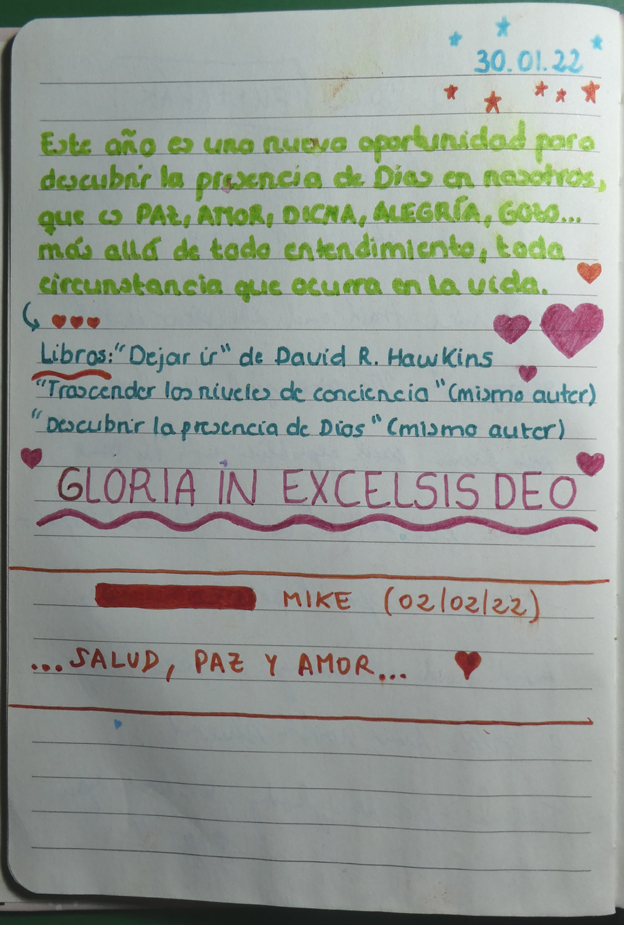 30.01.22
Este año es una nueva oportunidad para
descubrir la presencia de Dios en nosotros,
que es PAZ, AMOR, DICHA, ALEGRÍA, GOZO...
más allá de todo entendimiento, toda
circunstancia que ocurra en la vida.
Libros: "Dejar ir" de David R. Hawkins
"Trascender los niveles de conciencia" (mismo autor)
"Descubrir la presencia de Dios" (mismo autor)
GLORIA IN EXCELSIS DEO
MIKE (02/02/22)
...SALUD, PAZ Y AMOR...